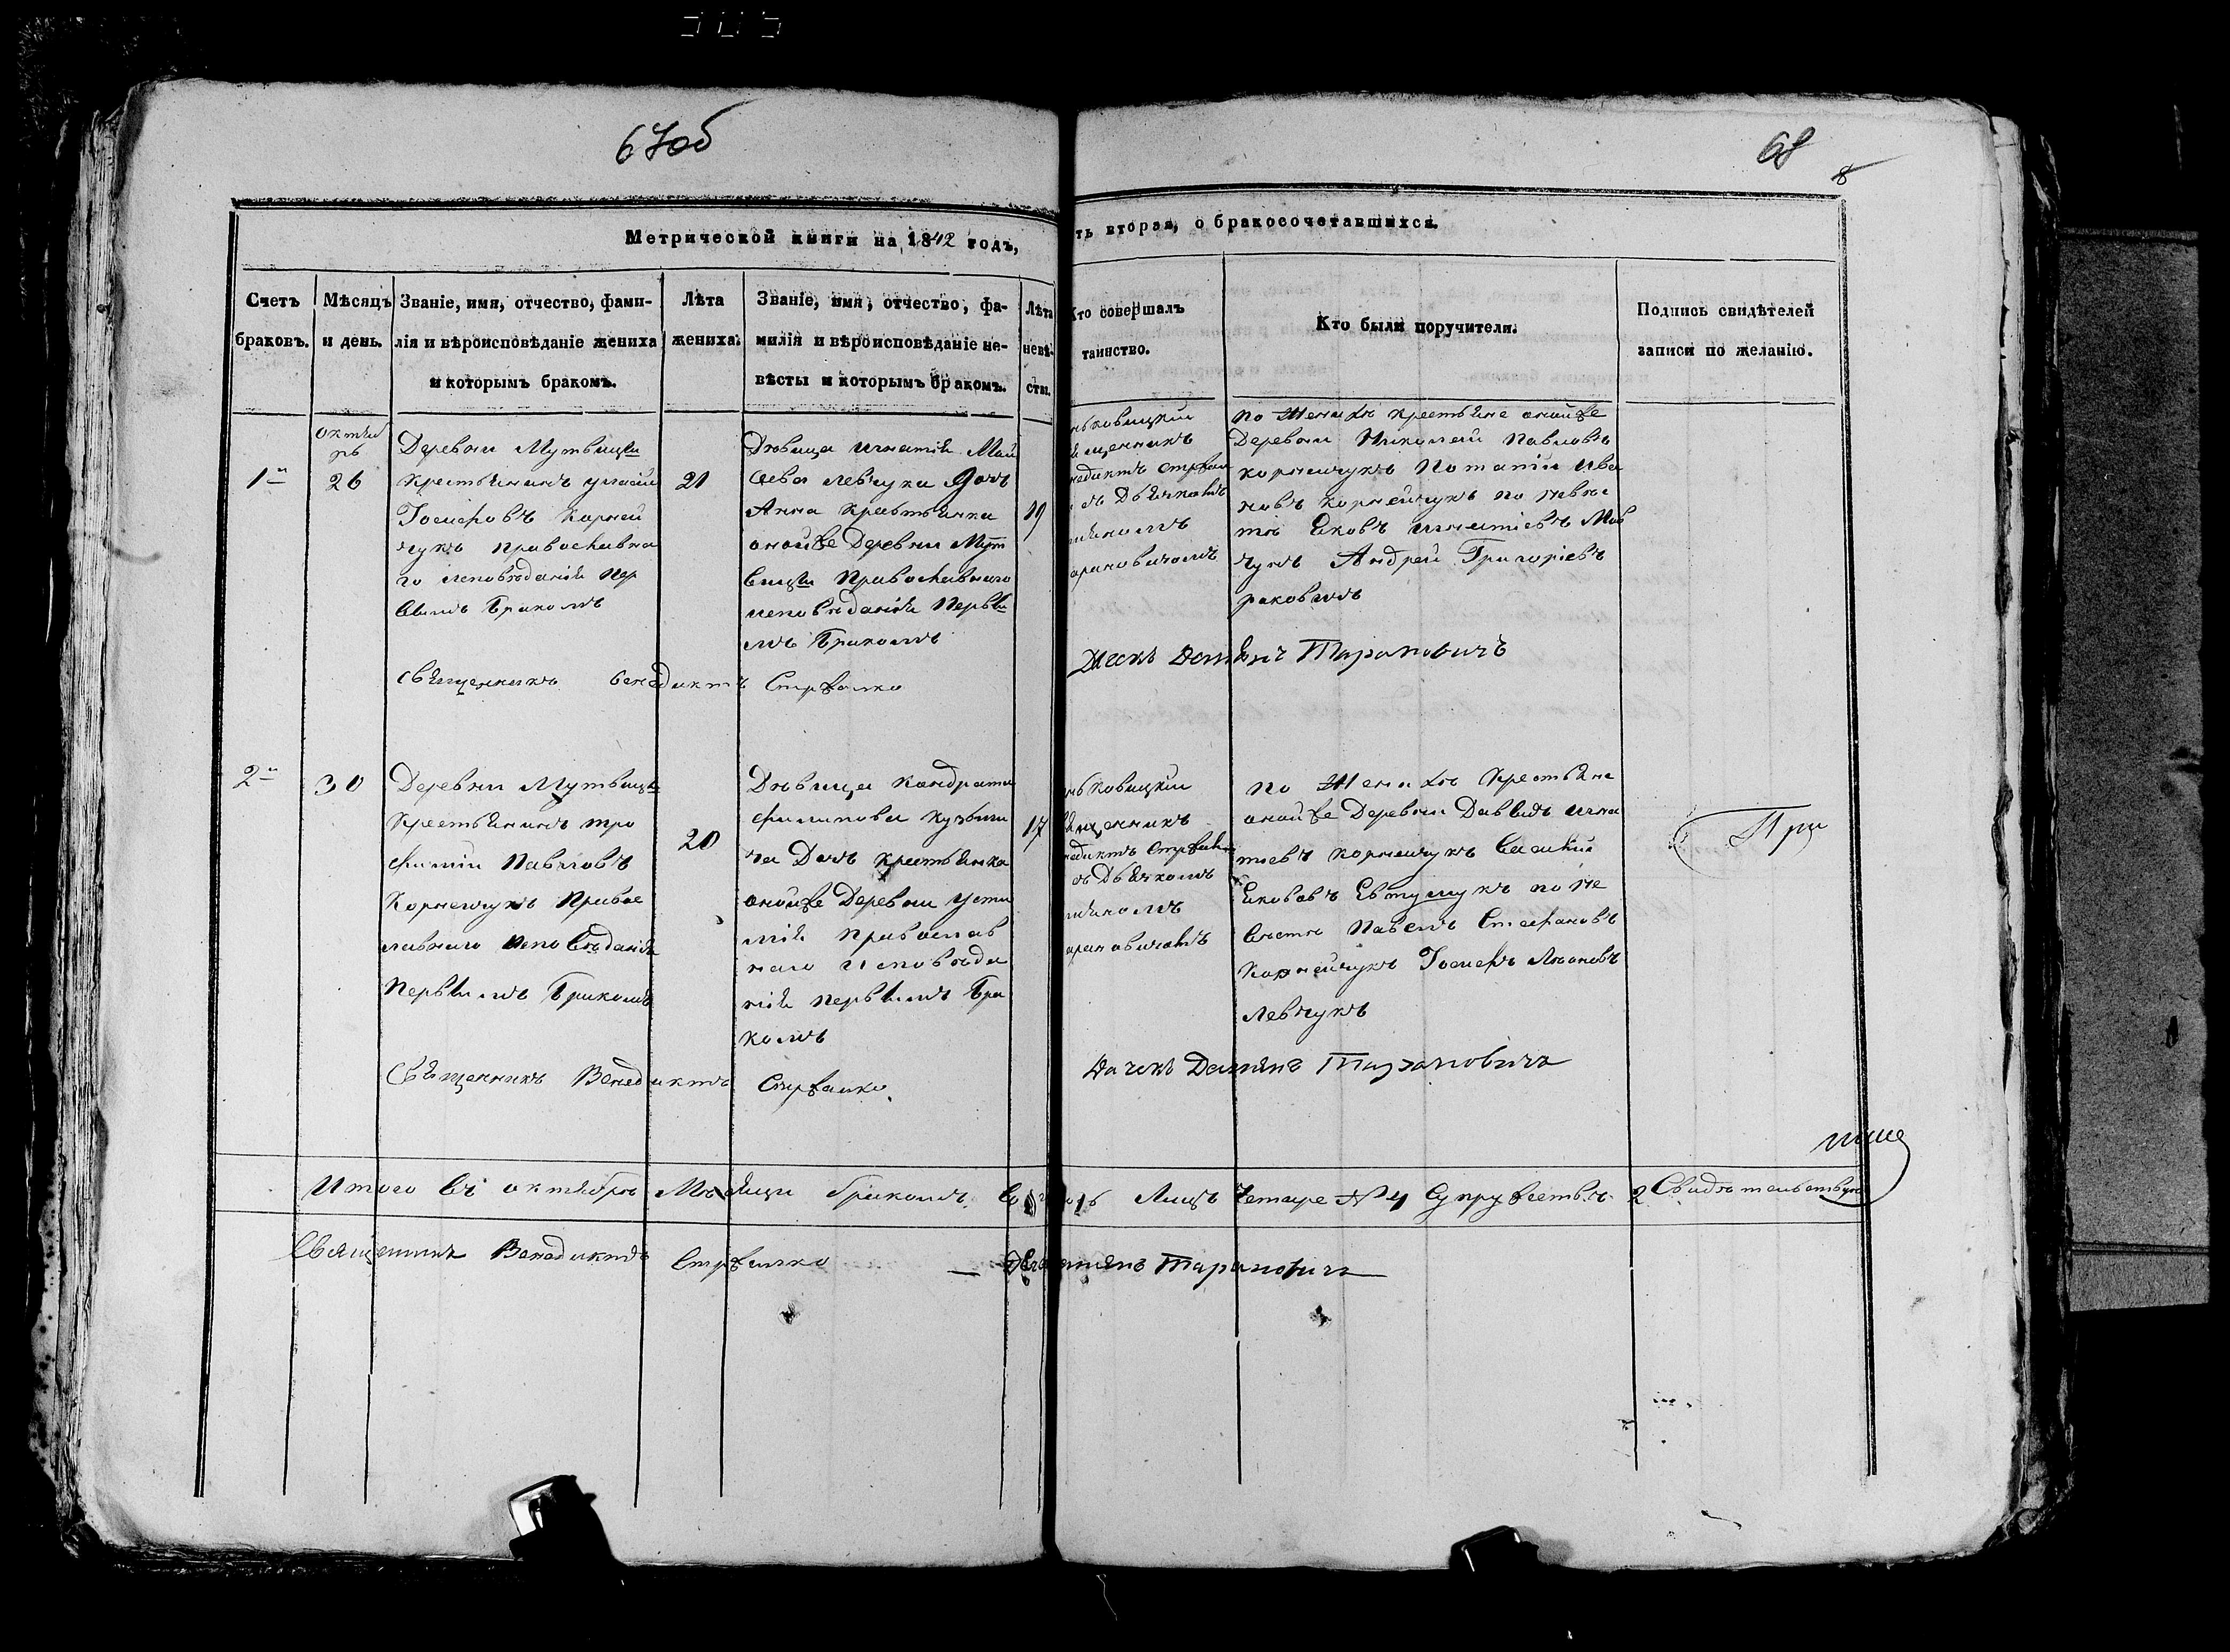 67об
68
8
Метрической книги на 1842 годъ,
ть вторая, о бракосочетавшихся.
Счетъ
браковъ.
Мѣсяцъ
и день.
Званіе, имя, отчество, фами-
лія и вѣроисповѣданіе жениха
и которымъ бракомъ.
Лѣта
жениха.
Званіе, имя, отчество, фа-
милія и вѣроисповѣданіе не-
вѣсты и которымъ бракомъ.
Лѣта
невѣ-
сты.
Кто совершалъ
таинство.
Кто были поручители.
Подпись свидѣтелей
записи по желанію.
1й
октяб
рь
26
Деревни Мутвицы
Крестьянинъ
Іосифовъ Корней
чукъ православна
го исповѣданія пер
вымъ бракомъ
21
Дѣвица Игнатія
Левчука Дочь
Анна Крестьянка
онойже Деревни Мут
вицы Православнаго
исповѣданія Первы
мъ бракомъ
19
ньковицкій
ященникъ
недиктъ
ъ Дьячкомъ
арановичомъ
По Женихѣ крестьяне онойже
Деревни Николай Павловъ
корнейчукъ Потапій Ива
новъ корнейчукъ по невѣс
тѣ Яковъ Игнатіевъ
чукъ Андрей Григоріевъ
Священникъ Венедиктъ
Тарановичъ
2й
30
Деревни Мутвицы
Крестьянинъ тро
фимій Павловъ
Корнейчукъ Правос
лавнаго исповѣданія
Первымъ Бракомъ
20
Дѣвица Кондрата
филипова
ча Дочь крестьянка
онойже Деревни Усти
мія православ
наго исповѣда
нія первымъ Бра
комъ
17
ньковицкій
ященникъ
недиктъ
ъ Дьячкомъ
арановичомъ
по Женихѣ Крестьяне
онойже Деревни Давыдъ Игна
тіевъ корнейчукъ Василій
Яковавъ Евтушукъ по не
вѣстѣ Павелъ Стефановъ
Корнейчукъ Іосифъ
Левчукъ
При
Священникъ Венедиктъ
Дьячекъ Демянъ Тарановичъ
Итого въ октябрѣ Мѣсяци бракомъ Лицъ Четыре № 4 Супружествъ 2 Свидѣтельствую
Священникъ Венедиктъ
Тарановичъ